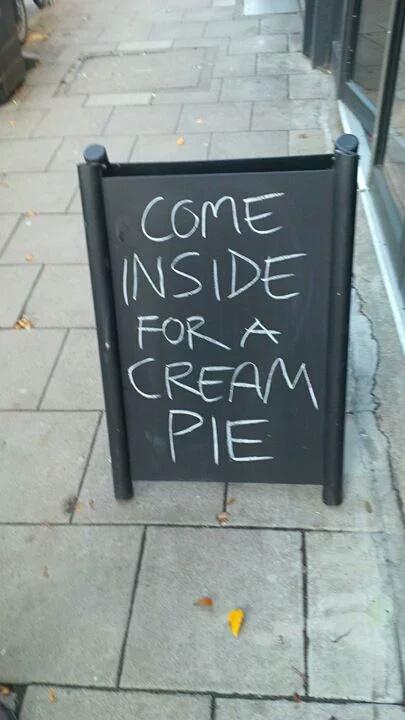 COME
INSIDE
FOR A
CREAM
PIE